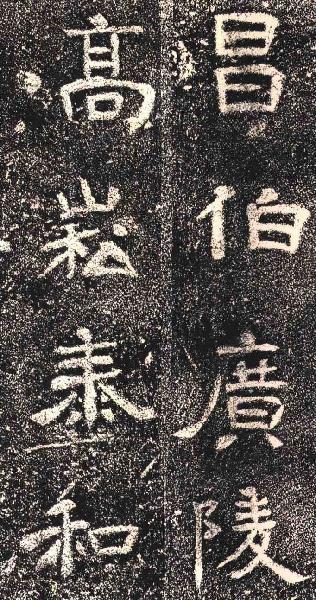 昌伯廣陵
高崧泰和